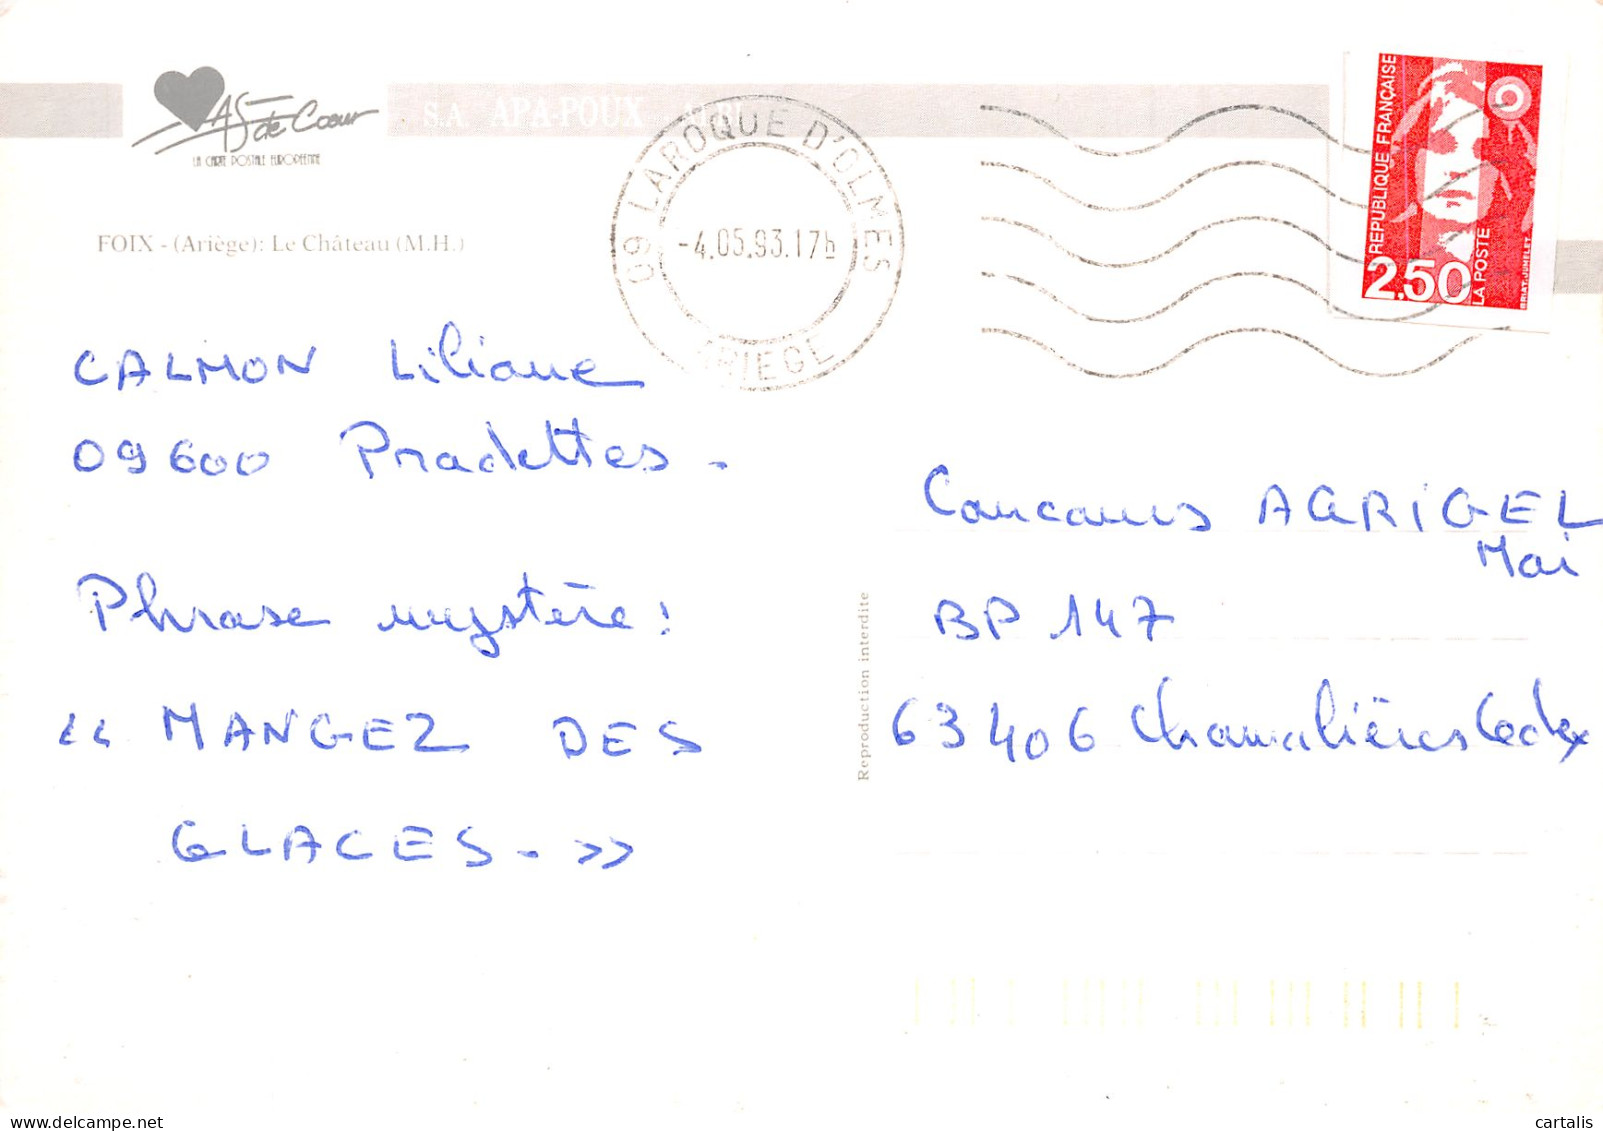 AS de Coeur
LA CARTE POSTALE EUROPÉENNE
S.A. APA-POUX - ALBI
FOIX - (Ariège): Le Château (M.H.)
09 LAROQUE D'OLMES
-4.05.93.17h
ARIEGE
REPUBLIQUE FRANÇAISE
2,50
LA POSTE
BRIAT-JUMELET
CALMON Liliane
09600 Pradettes -
Phrase mystère :
« MANGEZ DES
GLACES - »
Reproduction interdite
Concours AGRIGEL
Mai
BP 147
63406 Chamalières Cedex
delcampe.net
cartalis